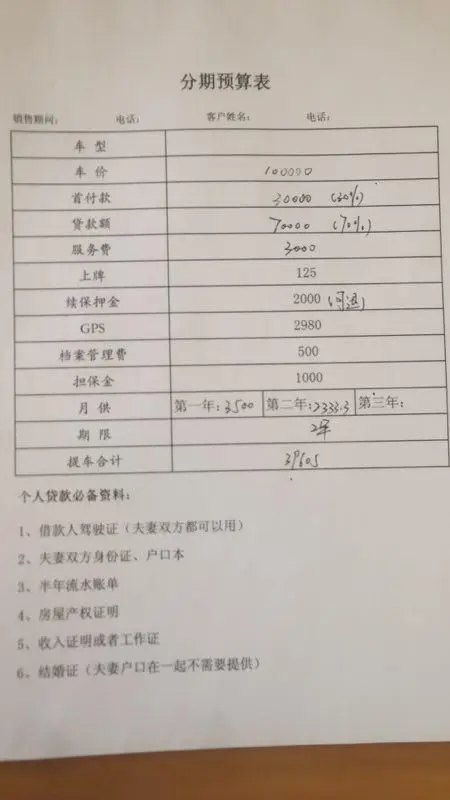 分期预算表
销售顾问: 电话: 客户姓名: 电话:
车 型
车 价 100000
首付款 30000 (30%)
贷款额 70000 (70%)
服务费 3000
上牌 125
续保押金 2000 (可退)
GPS 2980
档案管理费 500
担保金 1000
月 供 第一年: 3500 第二年: 2333.3 第三年:
期 限 2年
提车合计 39605
个人贷款必备资料:
1、借款人驾驶证（夫妻双方都可以用）
2、夫妻双方身份证、户口本
3、半年流水账单
4、房屋产权证明
5、收入证明或者工作证
6、结婚证（夫妻户口在一起不需要提供）